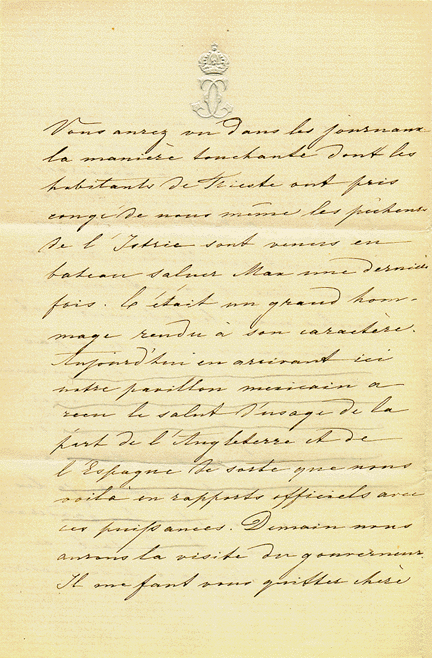 Vous aurez vu dans les journaux
la manière touchante dont les
habitants de Trieste ont pris
congé de nous même les pêcheurs
de l'Istrie sont venus en
bateau saluer Max une dernière
fois. C'était un grand hom-
mage rendu à son caractère.
Aujourd'hui en arrivant ici
notre pavillon mexicain a
reçu le salut d'usage de la
part de l'Angleterre et de
l'Espagne de sorte que nous
voilà en rapports officiels avec
ces puissances. Demain nous
aurons la visite du gouverneur.
Il me faut vous quitter chère